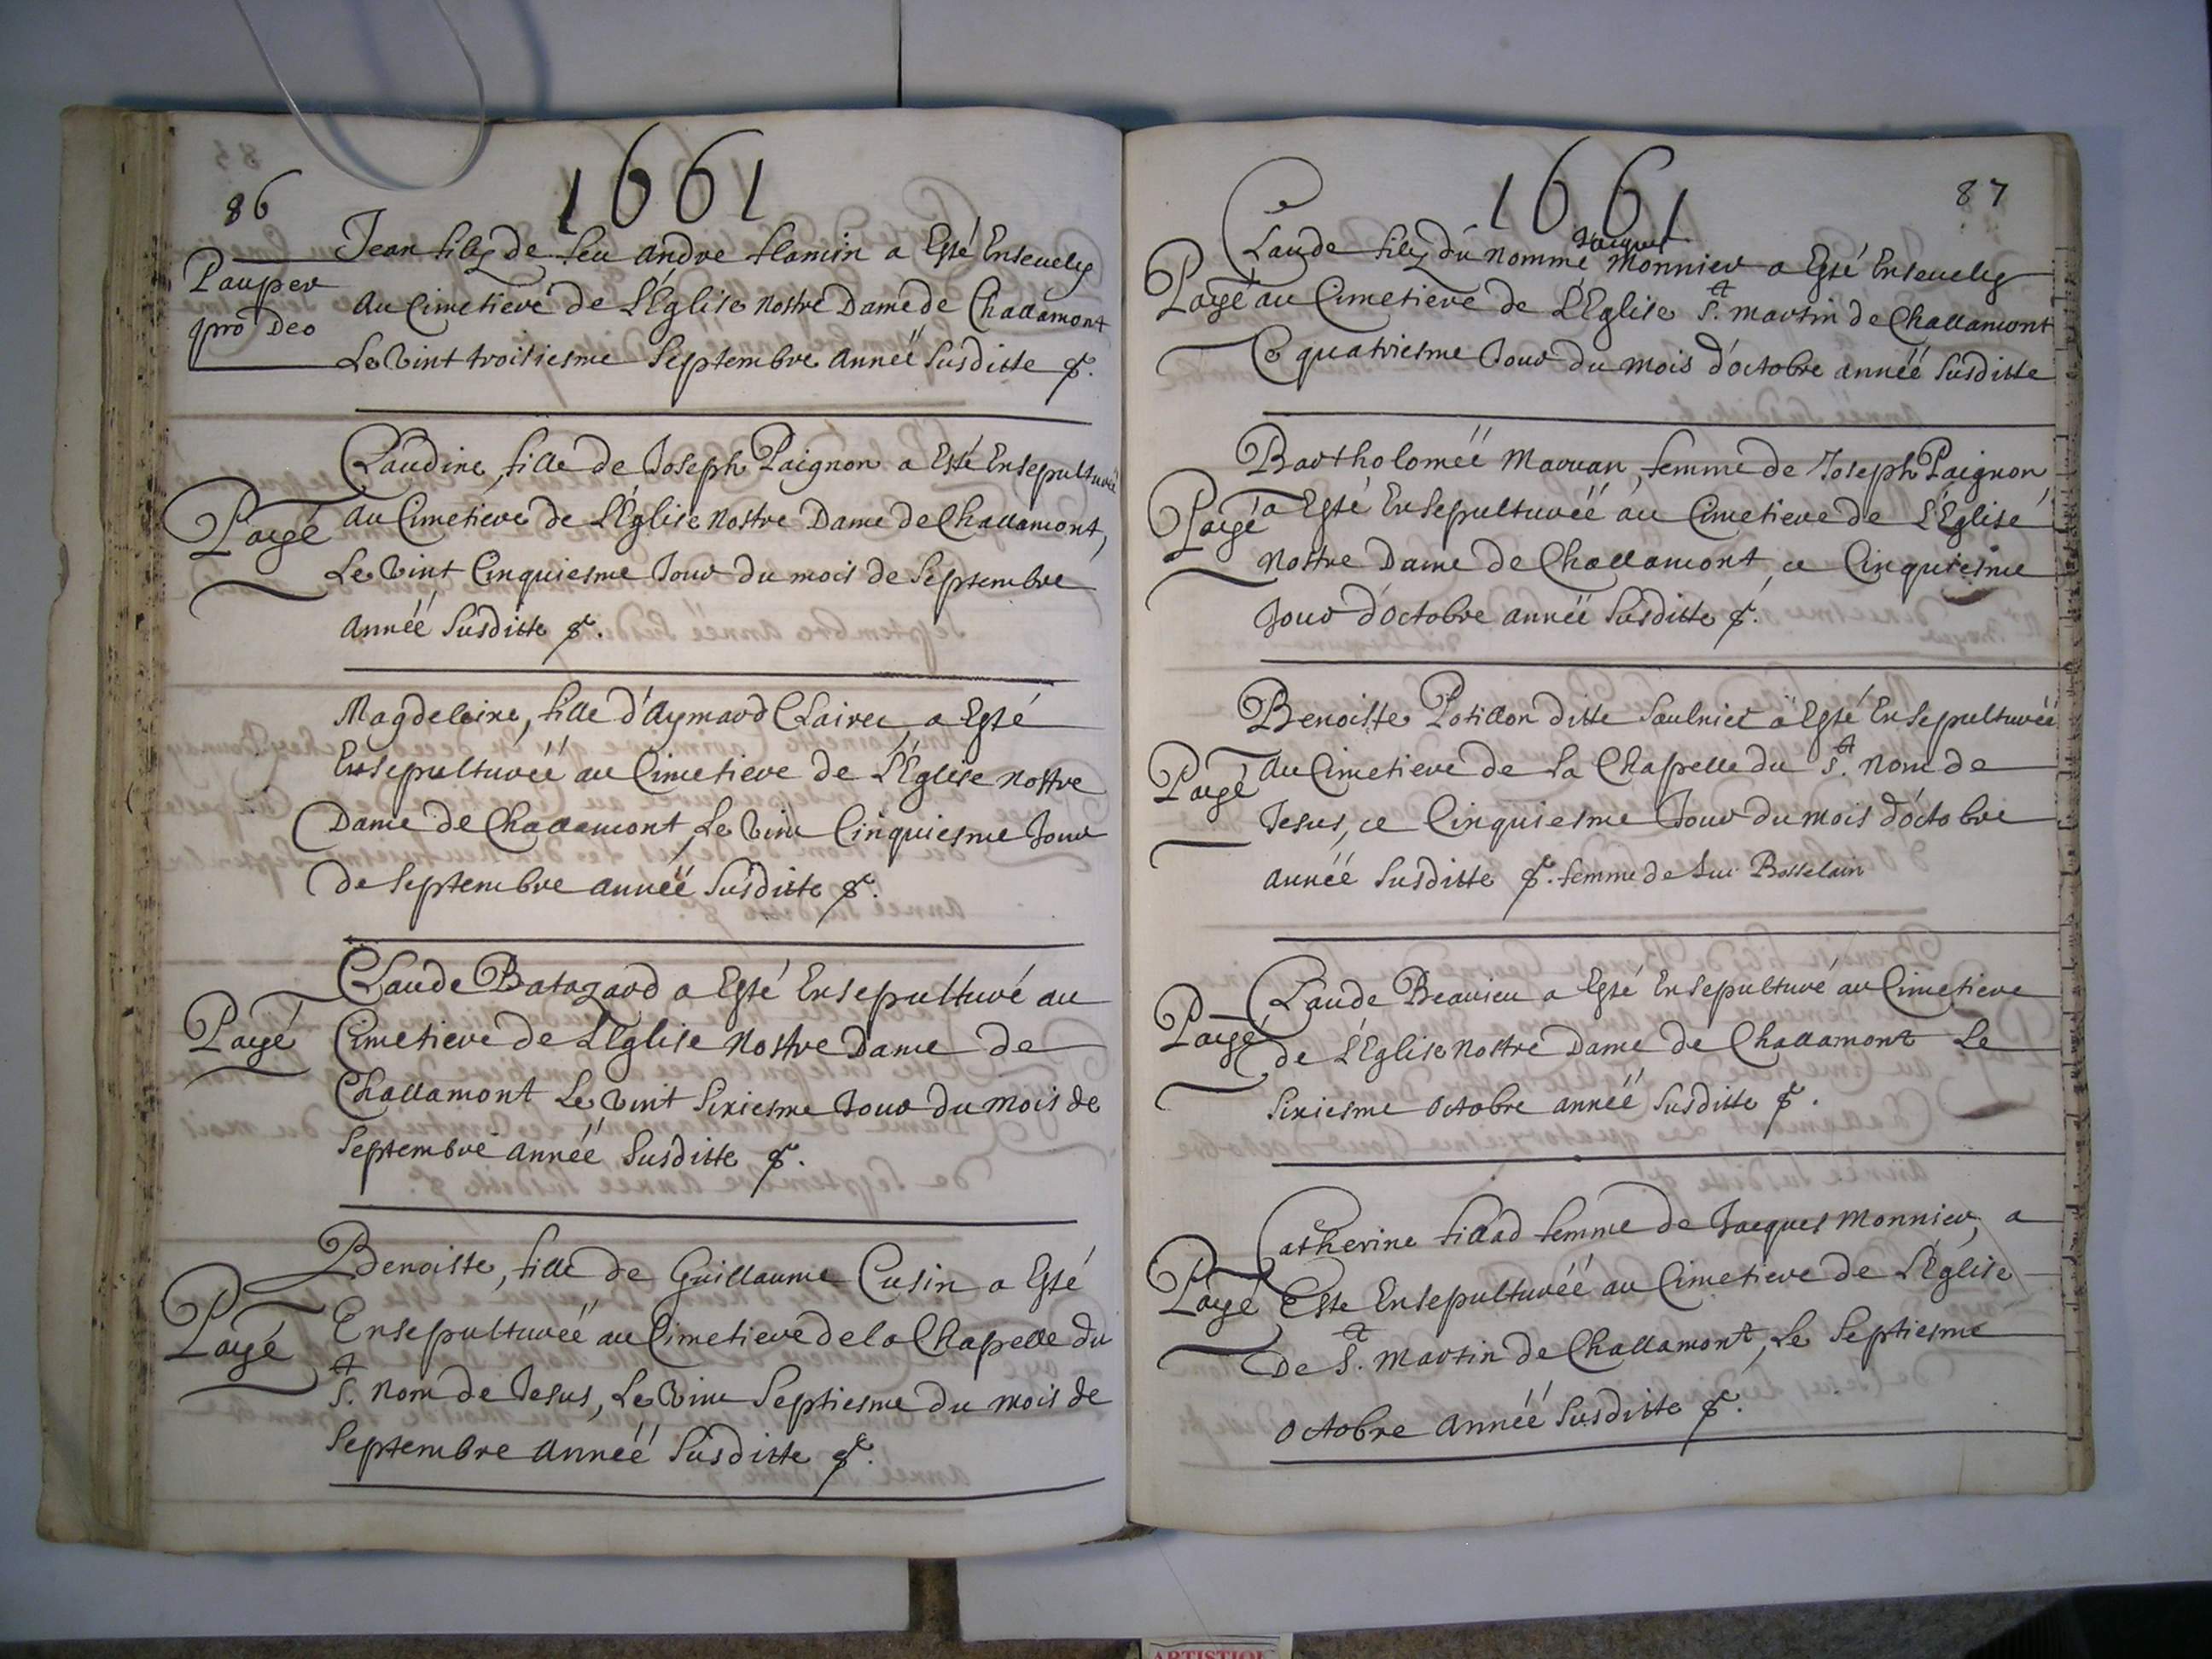 86
1661
Jean filz de feu andre flamin a Esté Enseuely
Pauper
pro Deo
au Cimetiere de L'Eglise nostre Dame de Challamont
Le vint troisiesme Septembre anneé Susditte &.
Claudine, fille de Joseph Paignon a Esté Ensepultureé
Payé
au Cimetiere de L'Eglise nostre Dame de Challamont,
Le vint Cinquiesme Jour du mois de Septembre
anneé Susditte &.
Magdeleine, fille d'Aymard Clairet, a Esté
Ensepultureé au Cimetiere de L'Eglise nostre
Dame de Challamont, Le vint Cinquiesme Jour
de Septembre anneé Susditte &.
Claude Batagard a Esté Ensepulturé au
Payé
Cimetiere de L'Eglise nostre Dame de
Challamont Le vint Sixiesme Jour du mois de
Septembre anneé Susditte &.
Benoiste, fille de Guillaume Cusin a Esté
Payé
Ensepultureé au Cimetiere de la Chapelle du
St. nom de Jesus, Le vint Septiesme du mois de
Septembre anneé Susditte &.
1661
87
Claude filz du nommé Jacques Monnier a Esté Enseuely
Payé
au Cimetiere de L'Eglise St. martin de Challamont
Ce quatriesme Jour du mois d'octobre anneé Susditte
Bartholomeé femme de Joseph Paignon
Payé
a Esté Ensepultureé au Cimetiere de L'Eglise
nostre Dame de Challamont, ce Cinquiesme
Jour d'octobre anneé Susditte &.
Benoiste Potillon ditte Saulnier a Esté Ensepultureé
Payé
au Cimetiere de la Chapelle du St. nom de
Jesus, ce Cinquiesme Jour du mois d'octobre
anneé Susditte &. femme de Bosselain
Claude Beaurieu a Esté Ensepulturé au Cimetiere
Payé
de L'Eglise nostre Dame de Challamont Le
Sixiesme octobre anneé Susditte &.
Catherine fillad femme de Jacques monnier, a
Payé
Este Ensepultureé au Cimetiere de L'Eglise
De St. Martin de Challamont, Le Septiesme
octobre anneé Susditte &.